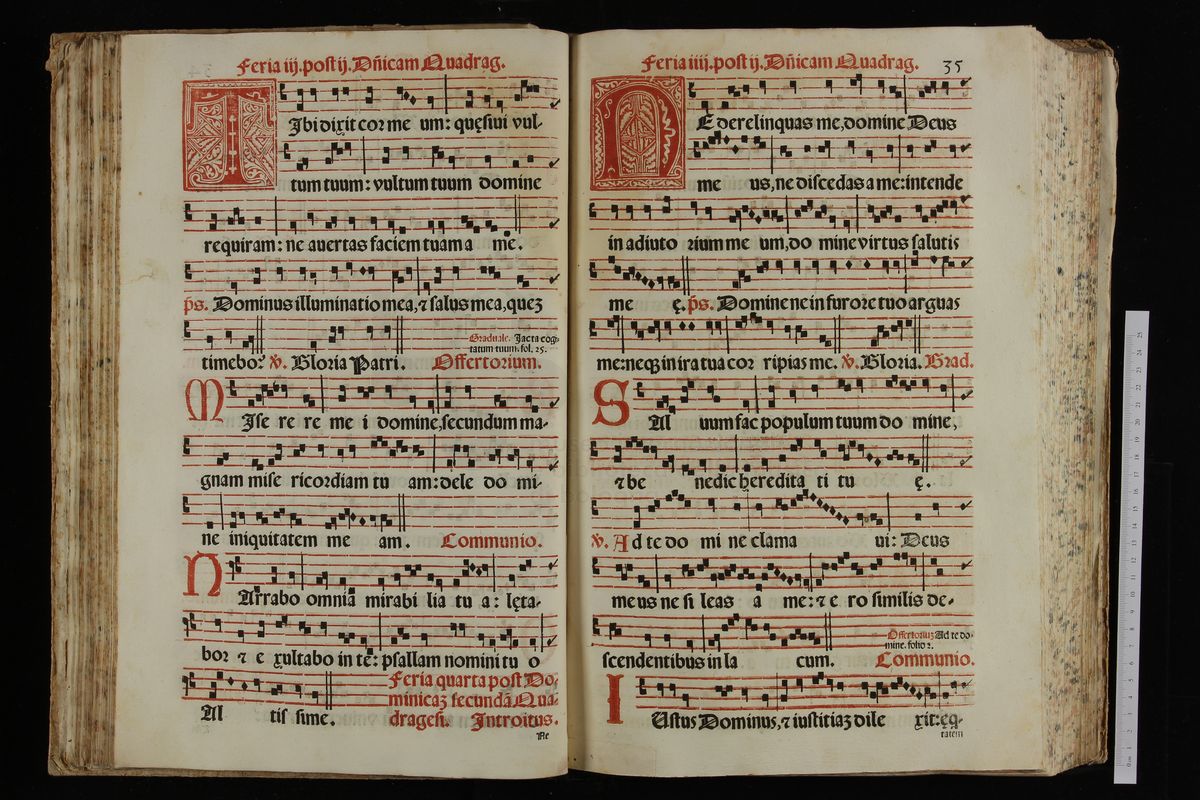 Feria iij. post ij. Dñicam Quadrag.
TIbi dixit cor me um: quęsiui vul-
tum tuum: vultum tuum domine
requiram: ne auertas faciem tuam a me.
ps. Dominus illuminatio mea, ⁊ salus mea, quez
timebo? ℣. Gloria Patri. Offertorium.
Graduale. Jacta cog-
tatum tuum. fol. 25.
MIse re re me i domine, secundum ma-
gnam mise ricordiam tu am: dele do mi-
ne iniquitatem me am. Communio.
NArrabo omnia mirabi lia tu a: lęta-
bor ⁊ e xultabo in te: psallam nomini tu o
Al tis sime.
Feria quarta post Do-
minicaz secundã Qua-
drages. Introitus.
Ne
Feria iiij. post ij. Dñicam Quadrag.
35
NE derelinquas me, domine Deus
me us, ne discedas a me: intende
in adiuto rium me um, do mine virtus salutis
me ę. ps. Domine ne in furore tuo arguas
me: neq; in ira tua cor ripias me. ℣. Gloria. Grad.
SAl uum fac populum tuum do mine,
⁊ be nedic hęredita ti tu ę.
℣. Ad te do mi ne clama ui: Deus
meus ne si leas a me: ⁊ e ro similis de-
scendentibus in la cum. Communio.
Offertoriuz Ad te do-
mine. folio 2.
IUstus Dominus, ⁊ iustitiaz dile xit: ęq-
tatem